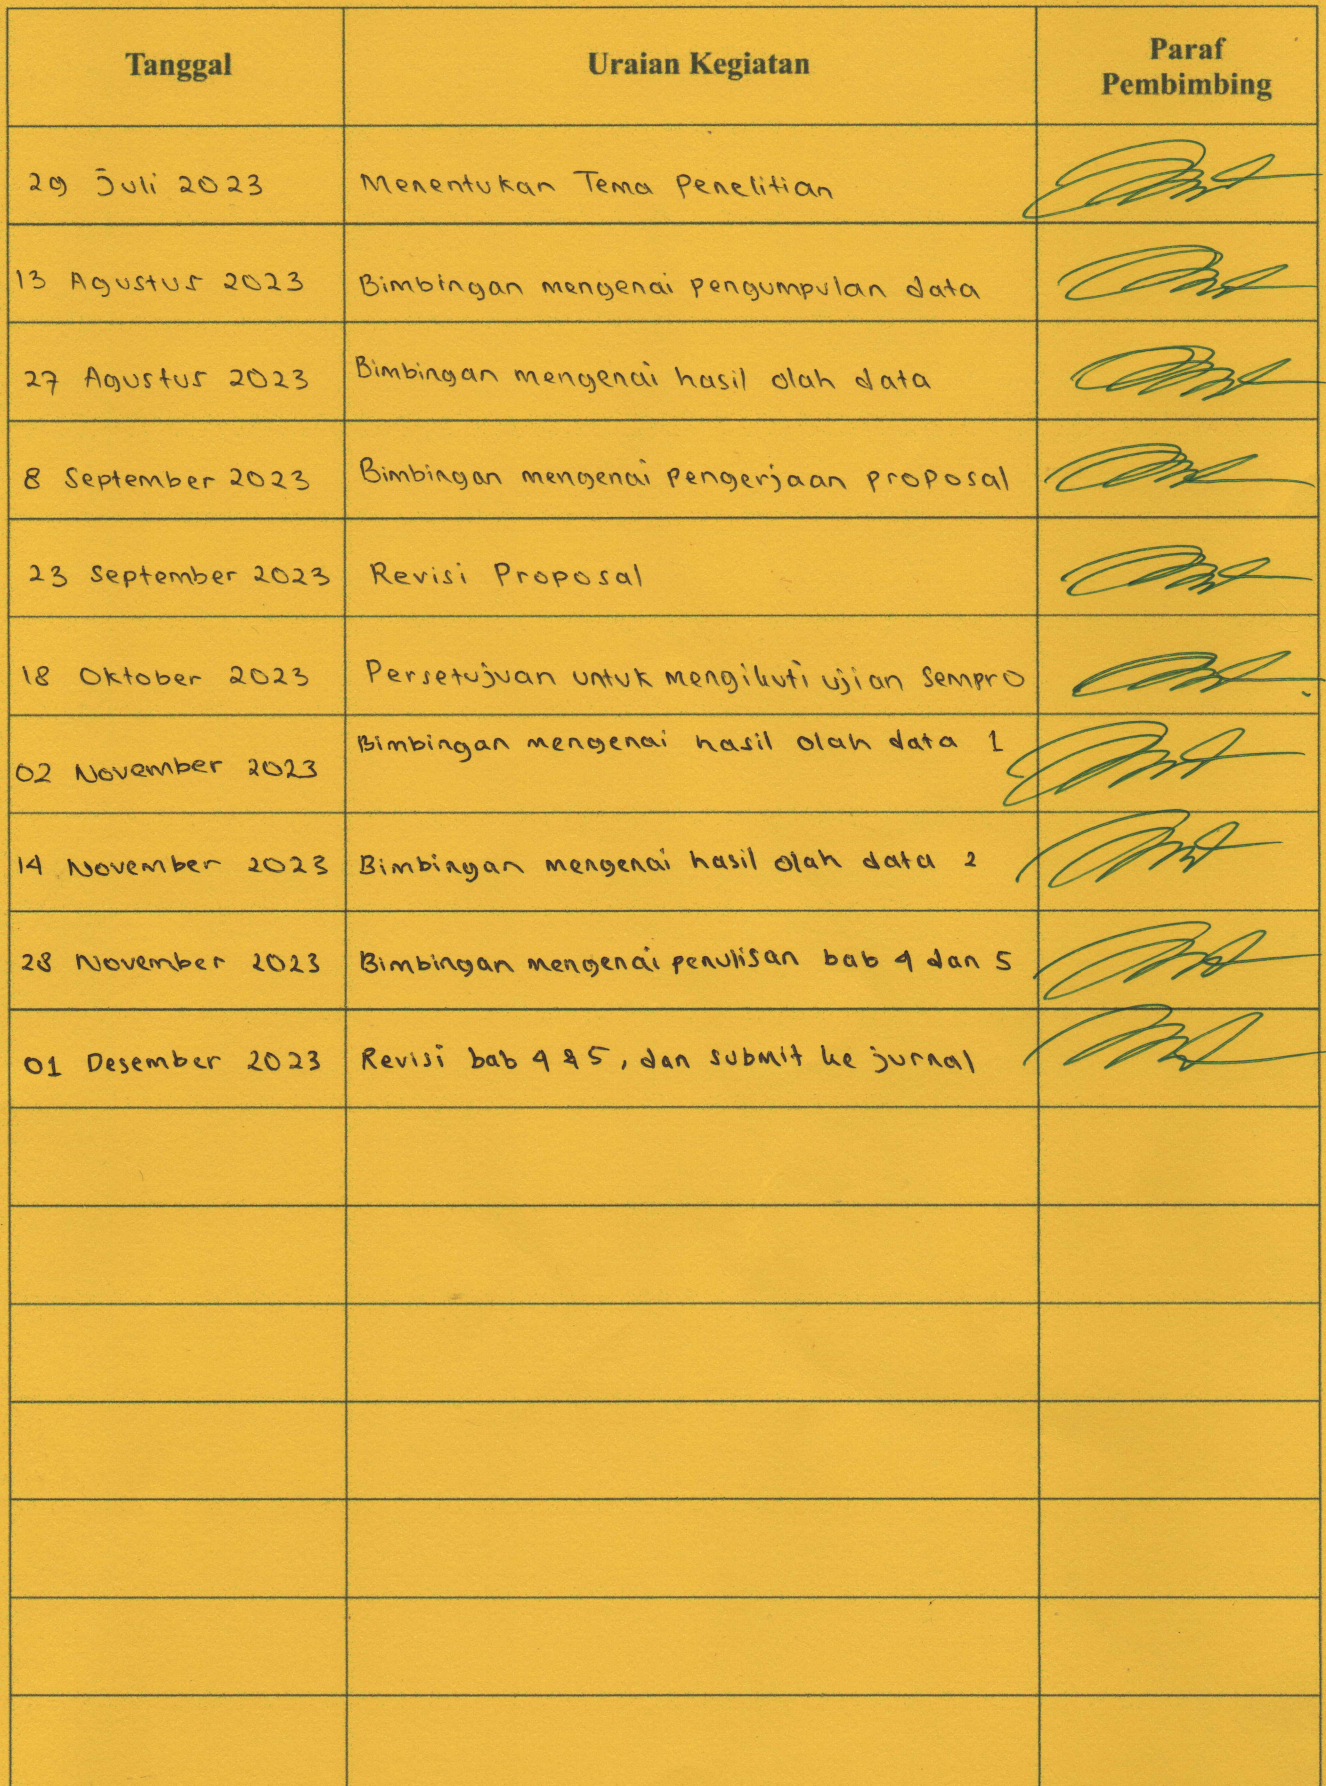 Tanggal
Uraian Kegiatan
Paraf
Pembimbing
29 Juli 2023
Menentukan Tema Penelitian
13 Agustus 2023
Bimbingan mengenai pengumpulan data
27 Agustus 2023
Bimbingan mengenai hasil olah data
8 September 2023
Bimbingan mengenai pengerjaan proposal
23 September 2023
Revisi Proposal
18 Oktober 2023
Persetujuan untuk mengikuti ujian Sempro
02 November 2023
Bimbingan mengenai hasil olah data 1
14 November 2023
Bimbingan mengenai hasil olah data 2
28 November 2023
Bimbingan mengenai penulisan bab 4 dan 5
01 Desember 2023
Revisi bab 4 & 5, dan submit ke jurnal